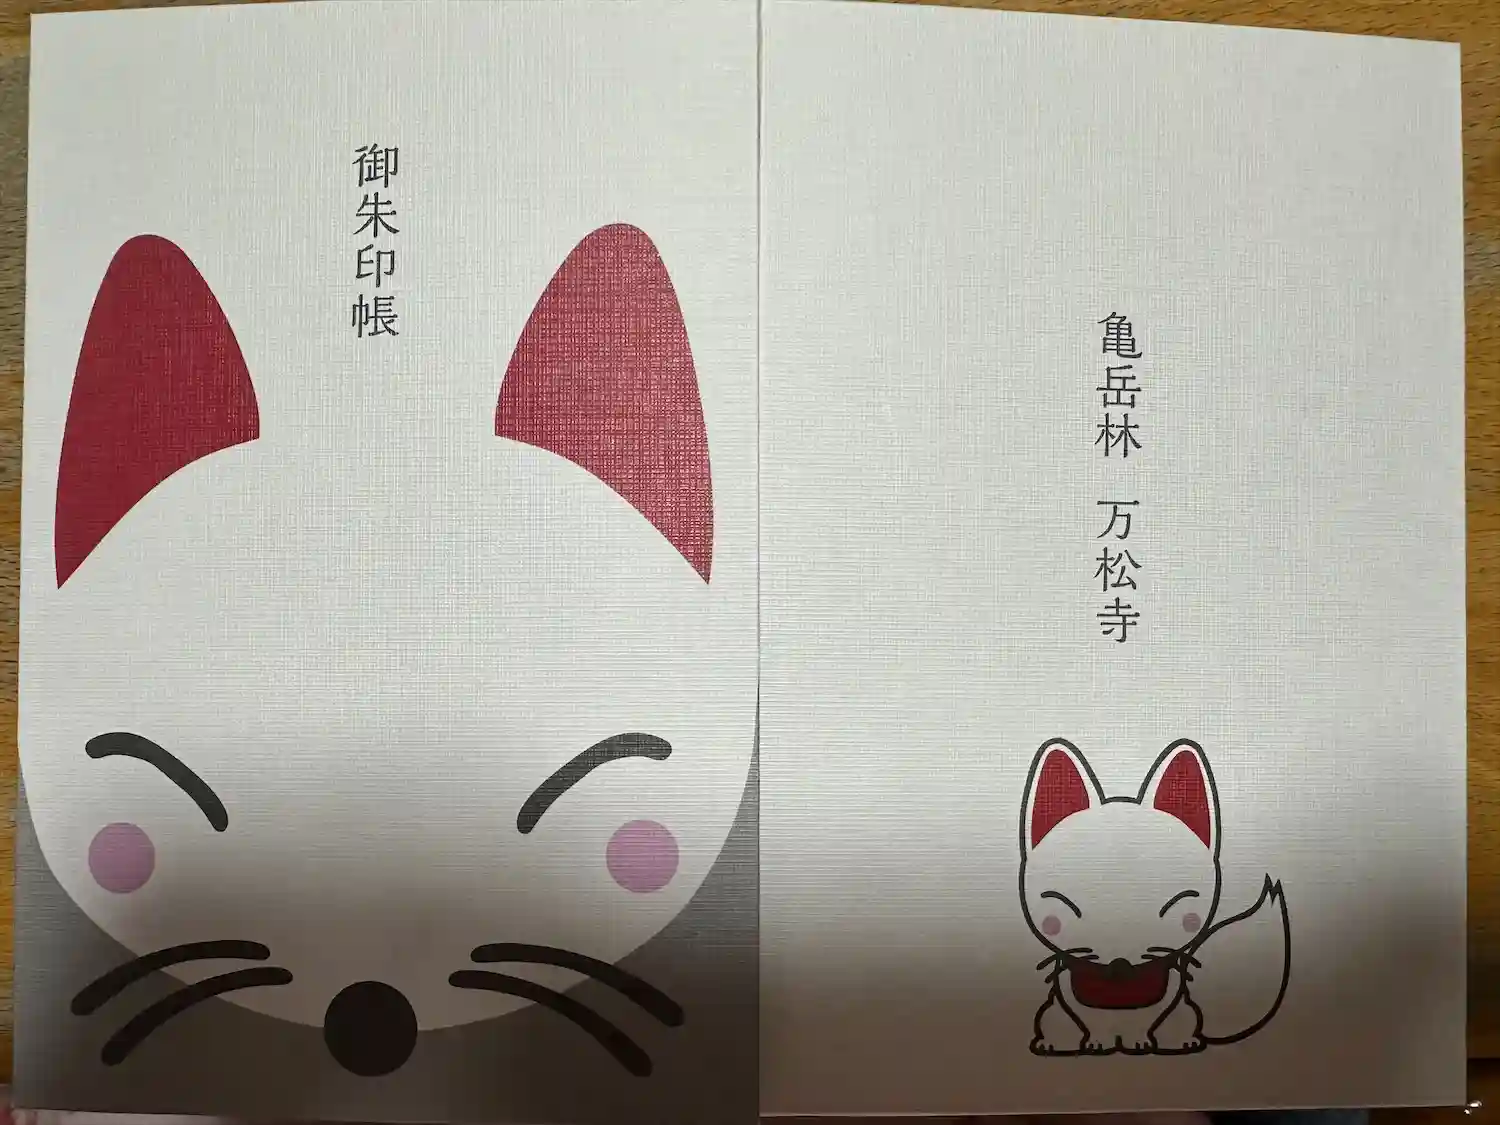 御朱印帳
亀岳林 万松寺